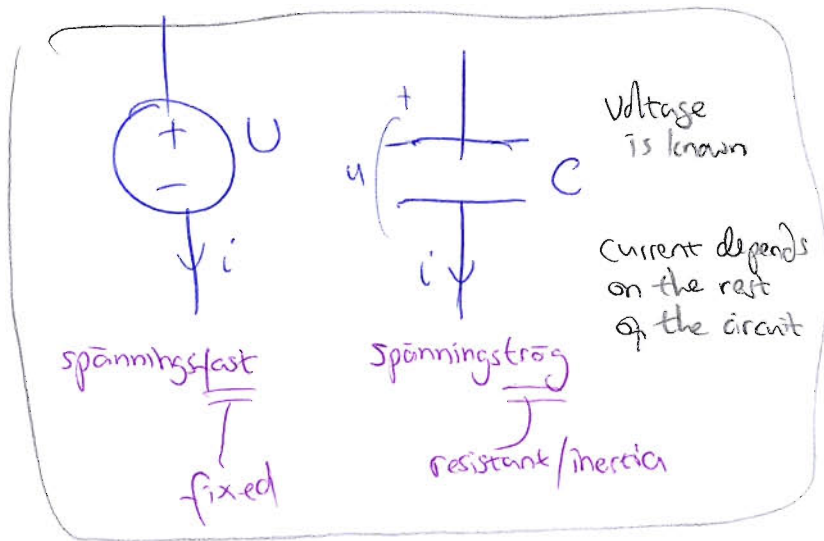 +
−
U
i
+
u
C
i
Voltage
is known
Current depends
on the rest
of the circuit
spänningsfast
fixed
spänningströg
resistant/inertia